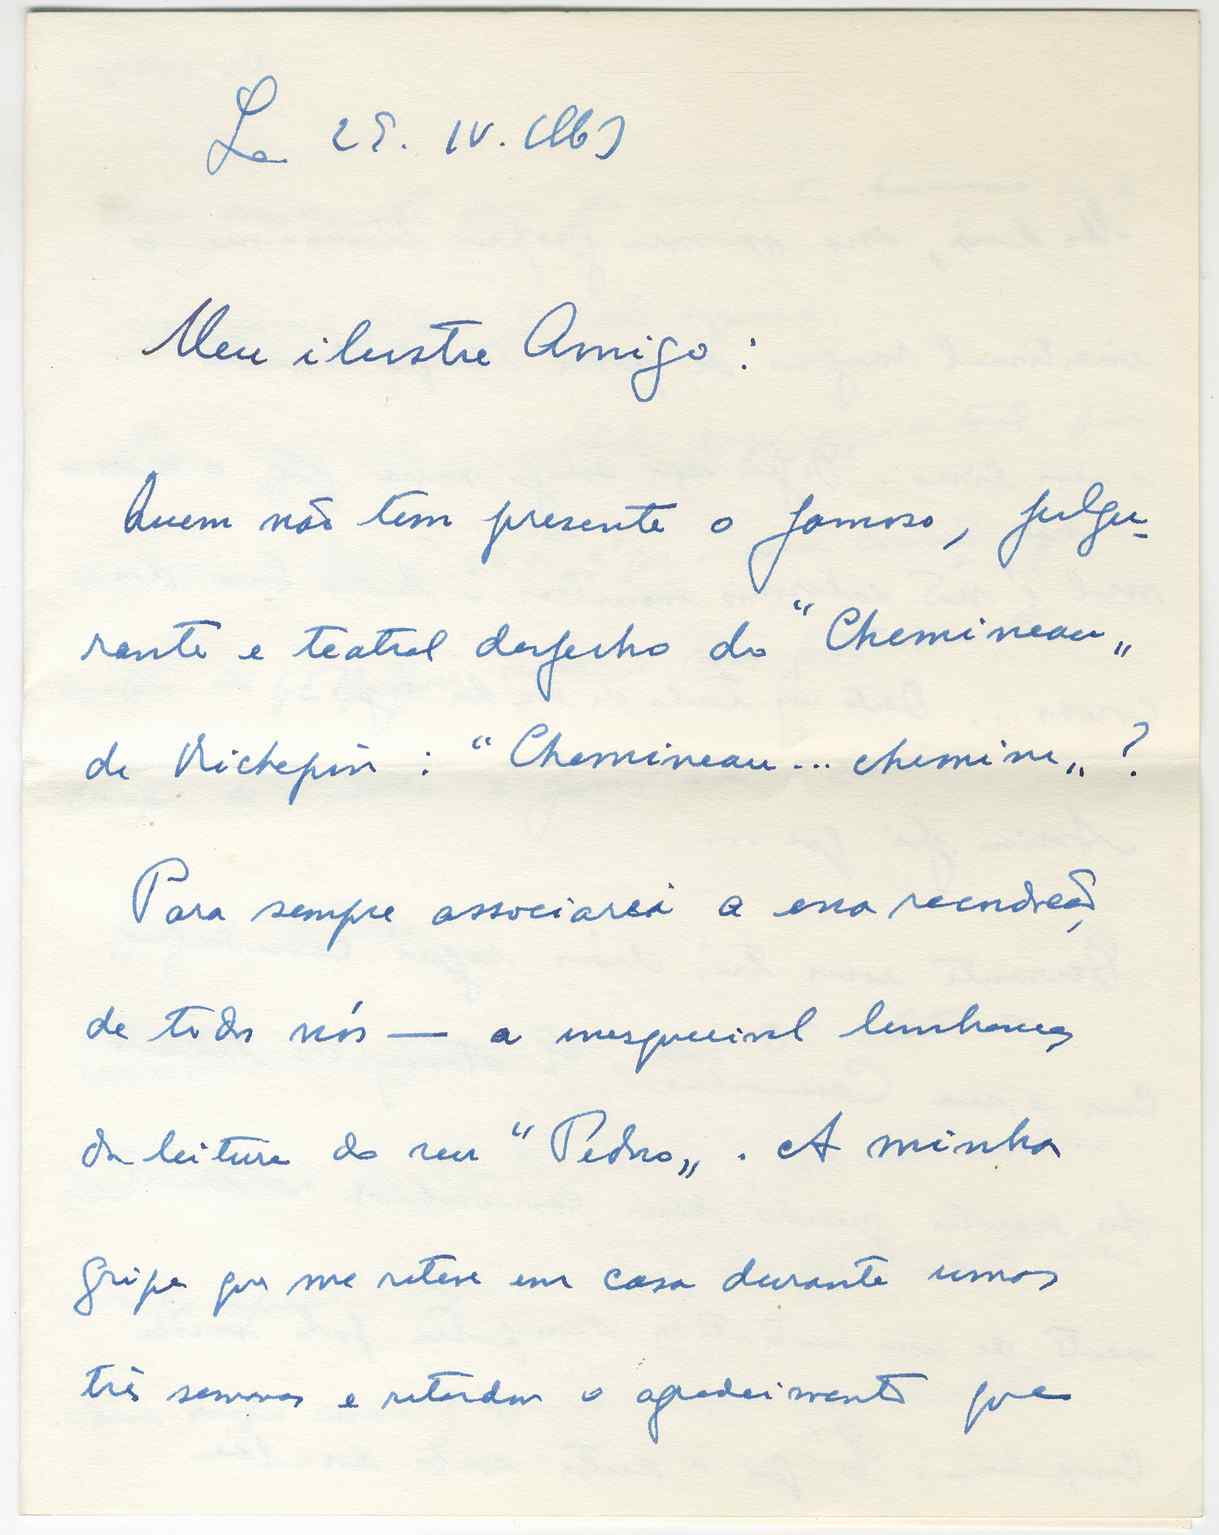 Meu ilustre Amigo:
Quem não tem presente o famoso, fulgu-
rante e teatral desfecho do "Chemineau„
de Richepin: "Chemineau... chemine„?
Para sempre associarei a essa recordação,
de todos nós — a inesquecível lembrança
da leitura do seu "Pedro„. A minha
gripe que me reteve em casa durante umas
três semanas e retardou o agradecimento que